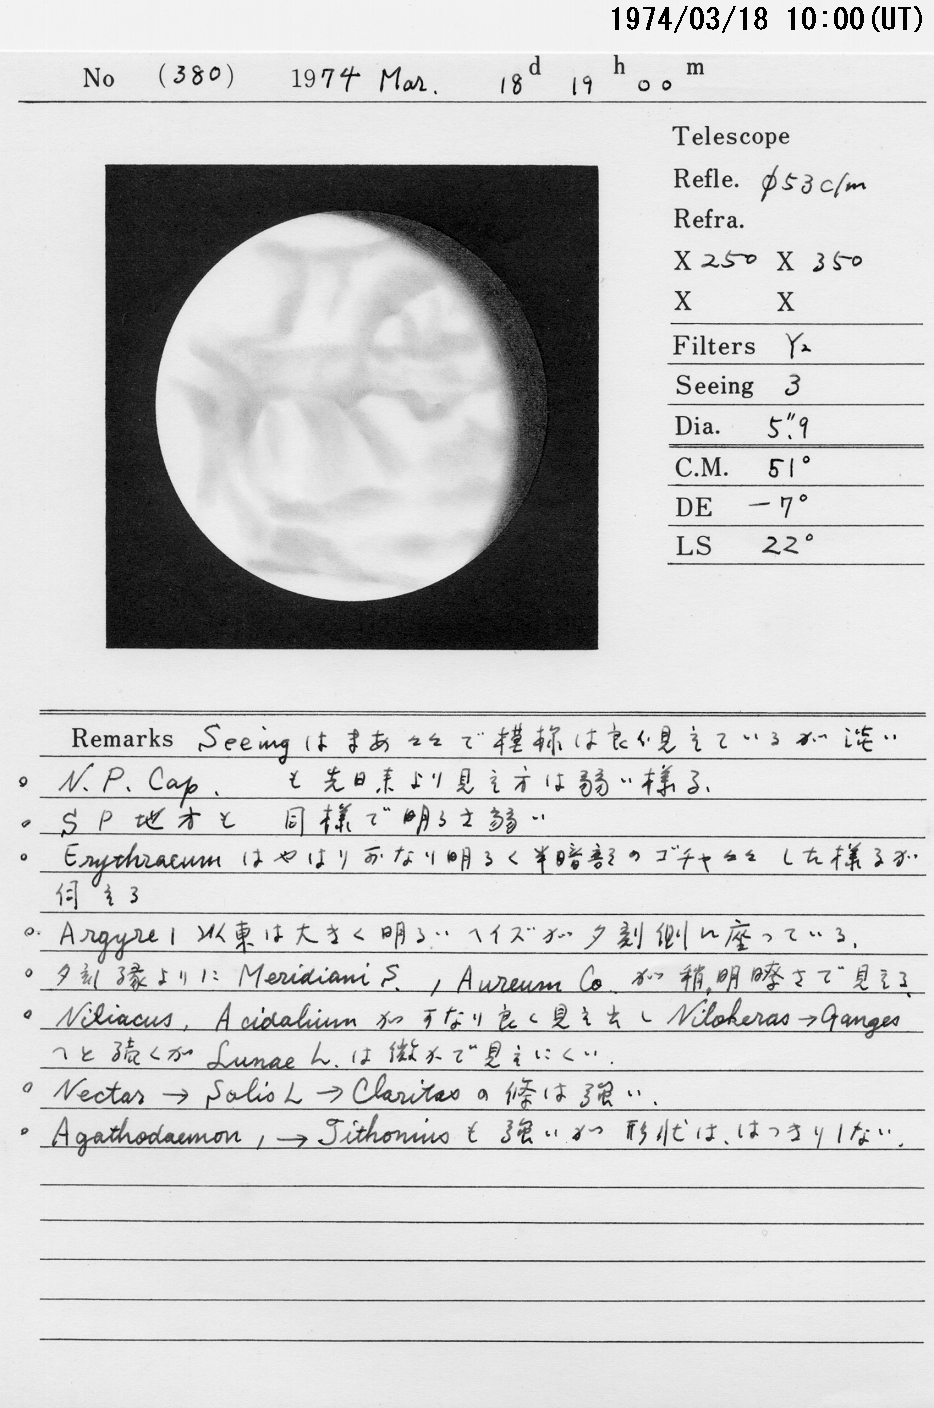 1974/03/18 10:00(UT)
No (380) 1974 Mar. 18d 19h 00m
Telescope
Refle. φ53c/m
Refra.
X 250 X 350
X X
Filters Y2
Seeing 3
Dia. 5".9
C.M. 51°
DE -7°
LS 22°
Remarks Seeing はまあ々々で模様は良く見えているが淡い
○ N.P. Cap. も先日来より見え方は弱い様る.
○ S P 地方も 同様で明るさ弱い
○ Erythraeum はやはりかなり明るく半暗部のゴチャ々々した様子が
伺える
○ Argyre I 以東は大きく明るいヘイズが夕刻側に座っている.
○ 夕刻縁よりに Meridiani S. , Aureum Co. が稍,明瞭さで見える.
○ Niliacus, Acidalium がかなり良く見え出し Nilokeras→Ganges
へと続くが Lunae L. は微かで見えにくい.
○ Nectar → Solis L → Claritas の條は強い.
○ Agathodaemon, → Tithonius も強いが形状は、はっきりしない.